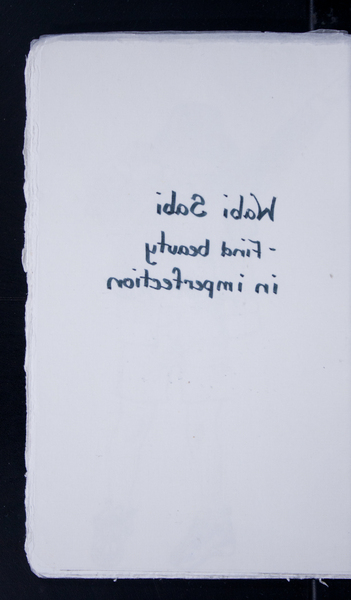 Wabi Sabi
- Find beauty
in imperfection